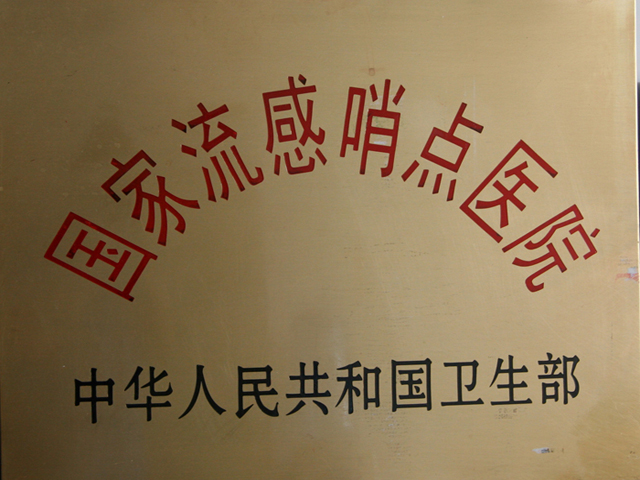 国家流感哨点医院
中华人民共和国卫生部